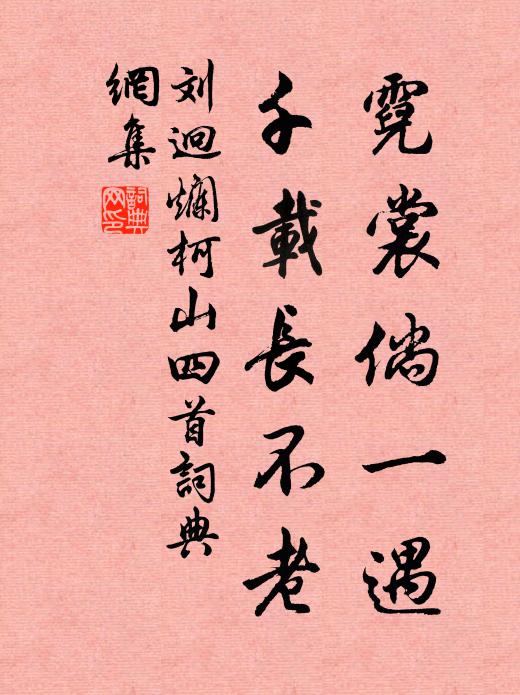 霓裳倘一遇
千載長不老
刘迥爛柯山四首詞典
網集
詞典网印